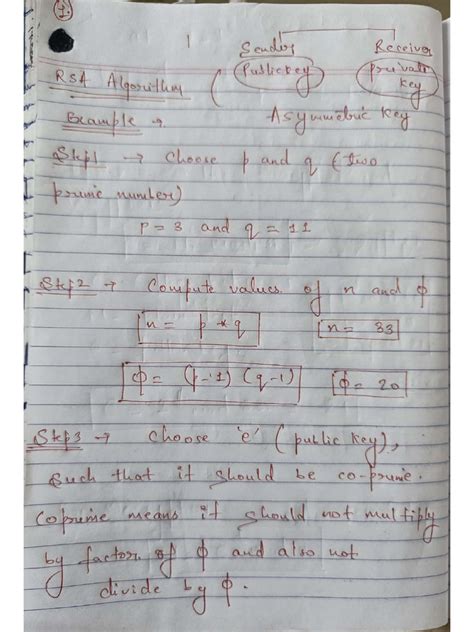 1
1
Sender Receiver
Public key private key
RSA Algorithm
Example →
Asymmetric key
Step1 → Choose p and q (two
prime number)
p = 3 and q = 11
Step2 → Compute values of n and ϕ
n = p * q n = 33
ϕ = (p-1) (q-1) ϕ = 20
Step3 → choose 'e' (public key),
Such that it should be co-prime.
Coprime means it should not multiply
by factor of ϕ and also not
divide by ϕ.